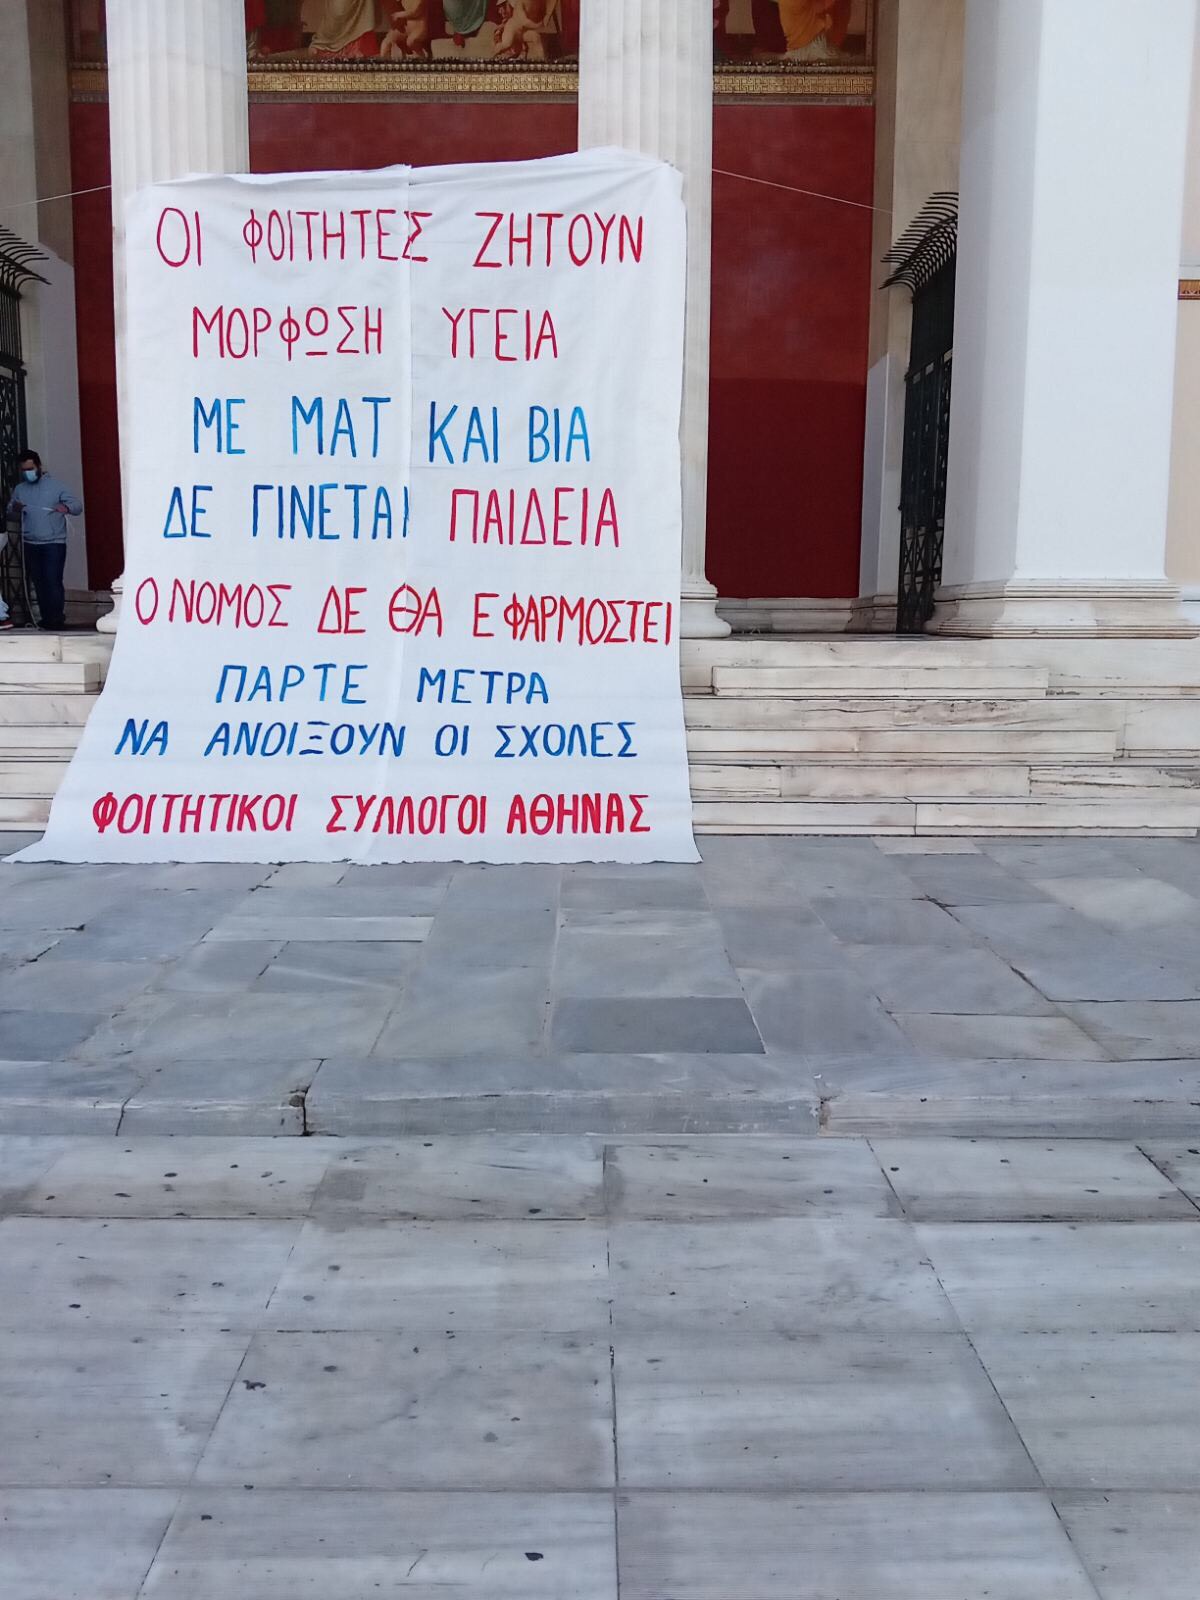 ΟΙ ΦΟΙΤΗΤΕΣ ΖΗΤΟΥΝ
ΜΟΡΦΩΣΗ ΥΓΕΙΑ
ΜΕ ΜΑΤ ΚΑΙ ΒΙΑ
ΔΕ ΓΙΝΕΤΑΙ ΠΑΙΔΕΙΑ
Ο ΝΟΜΟΣ ΔΕ ΘΑ ΕΦΑΡΜΟΣΤΕΙ
ΠΑΡΤΕ ΜΕΤΡΑ
ΝΑ ΑΝΟΙΞΟΥΝ ΟΙ ΣΧΟΛΕΣ
ΦΟΙΤΗΤΙΚΟΙ ΣΥΛΛΟΓΟΙ ΑΘΗΝΑΣ